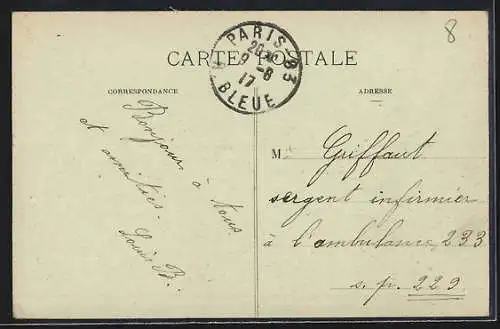 8
CARTE POSTALE
PARIS-93
20
9-8
17
BLEUE
CORRESPONDANCE
ADRESSE
Bonjour à tous
et amitiés.
Louis B.
M Griffaut
sergent infirmier
à l'ambulance 233
s. p. 229